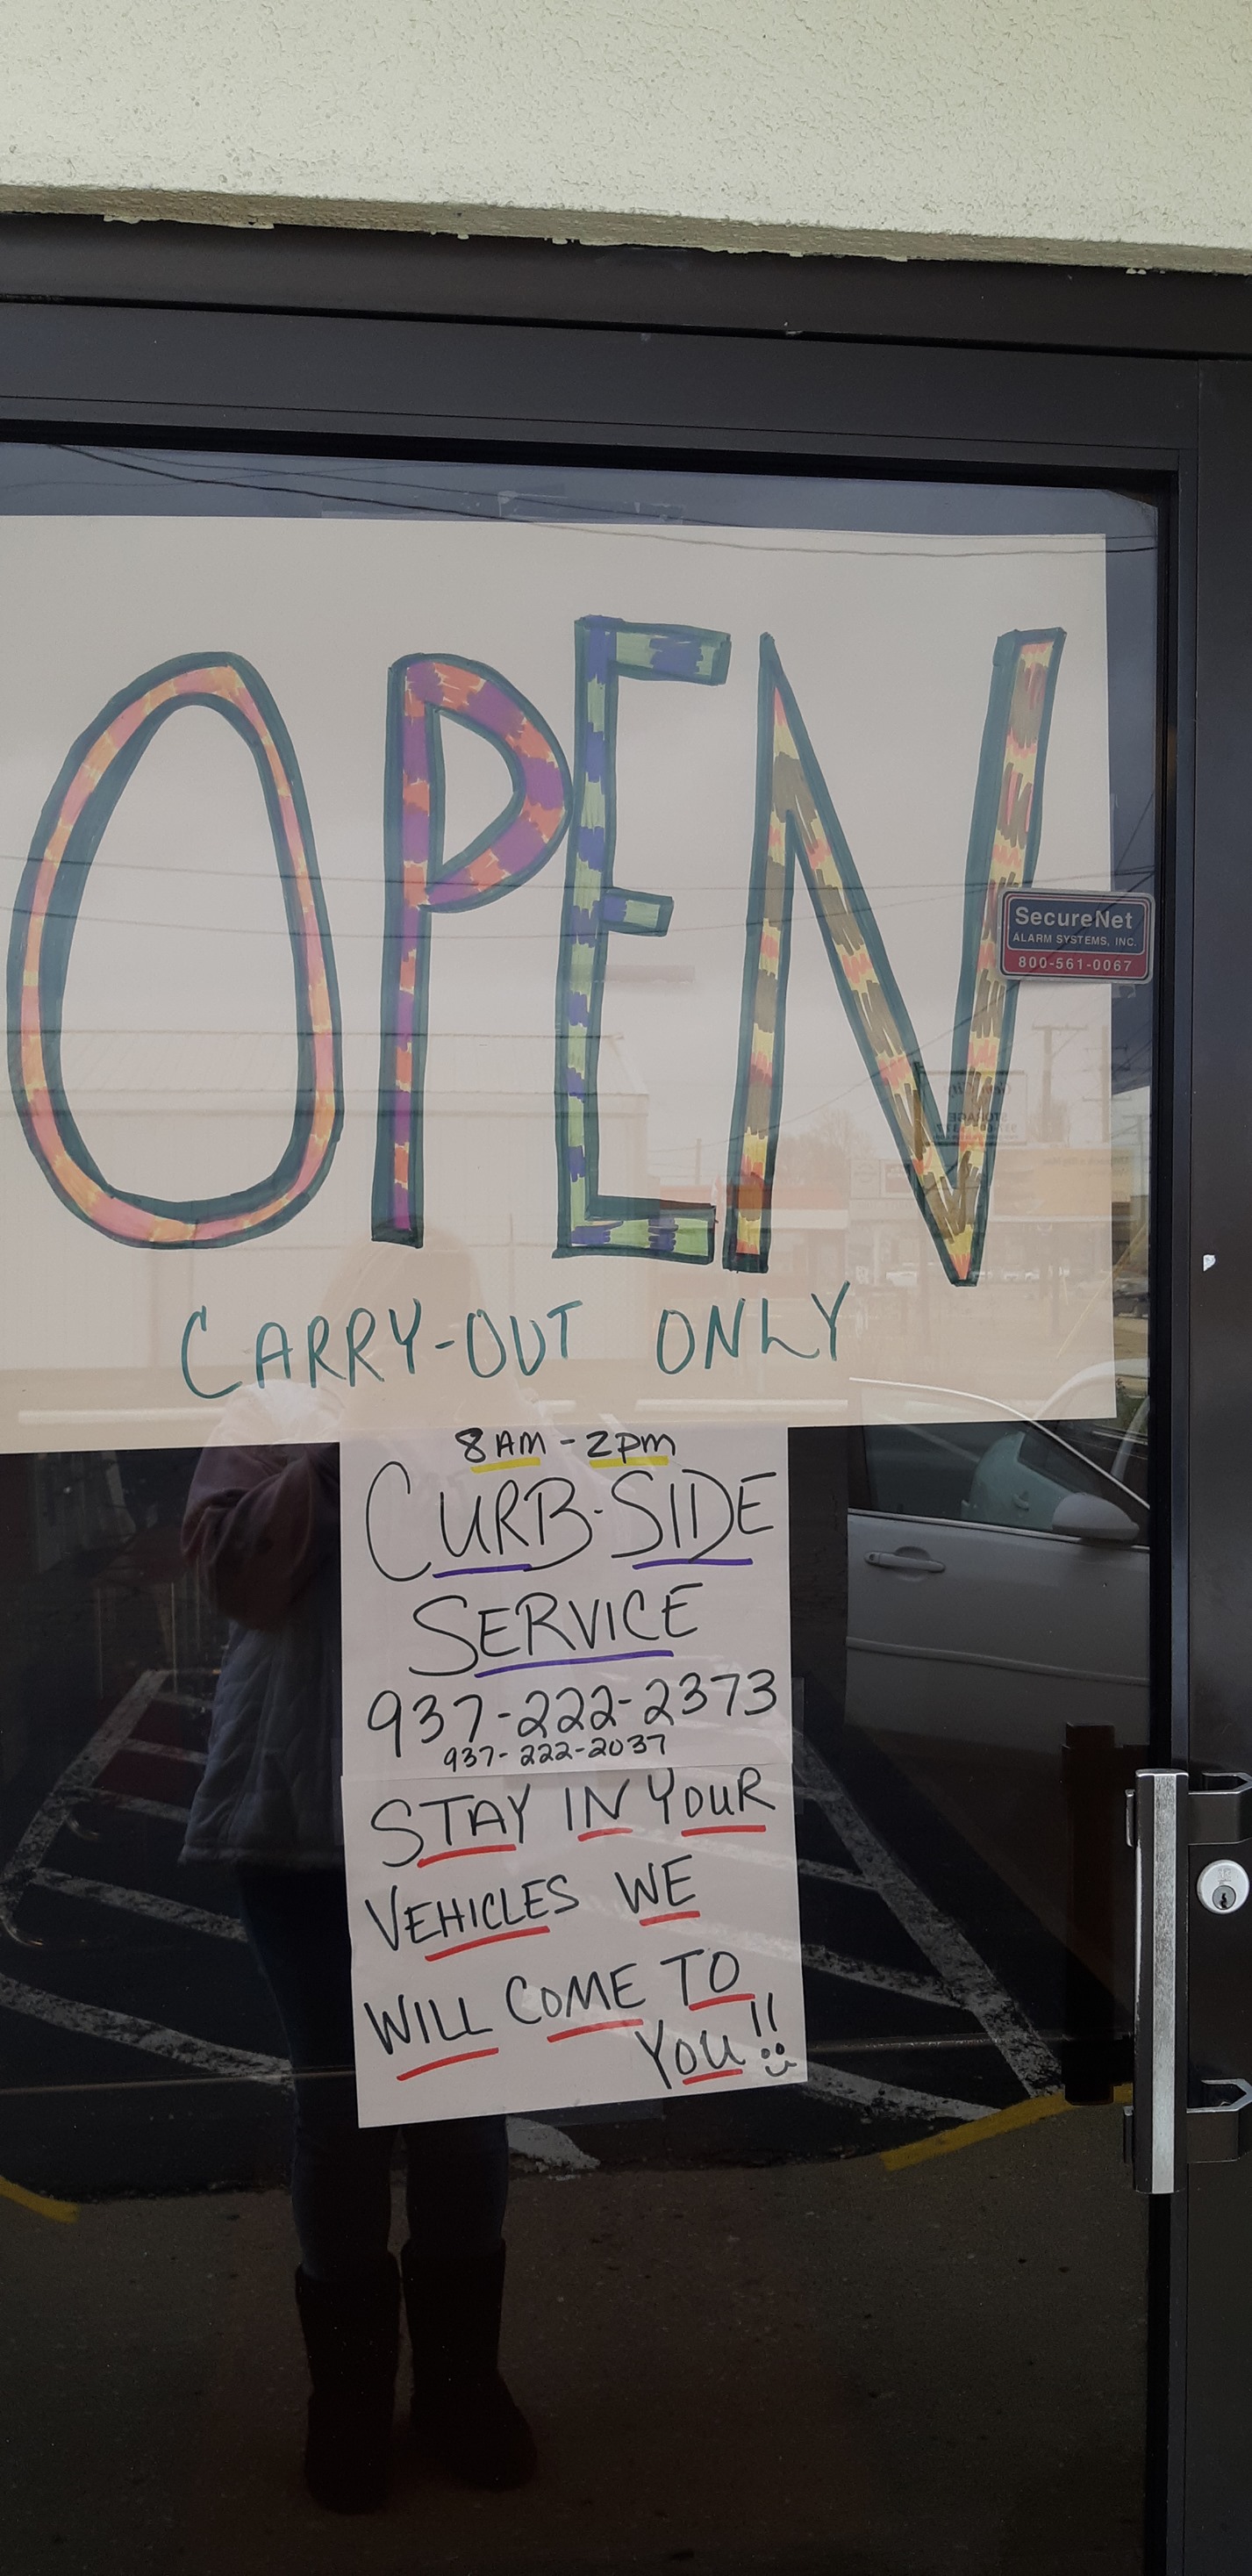 OPEN
SecureNet
ALARM SYSTEMS, INC.
800-561-0067
CARRY-OUT ONLY
8AM - 2PM
CURB-SIDE
SERVICE
937-222-2373
937-222-2037
STAY IN YOUR
VEHICLES WE
WILL COME TO
YOU!!
STORAGE